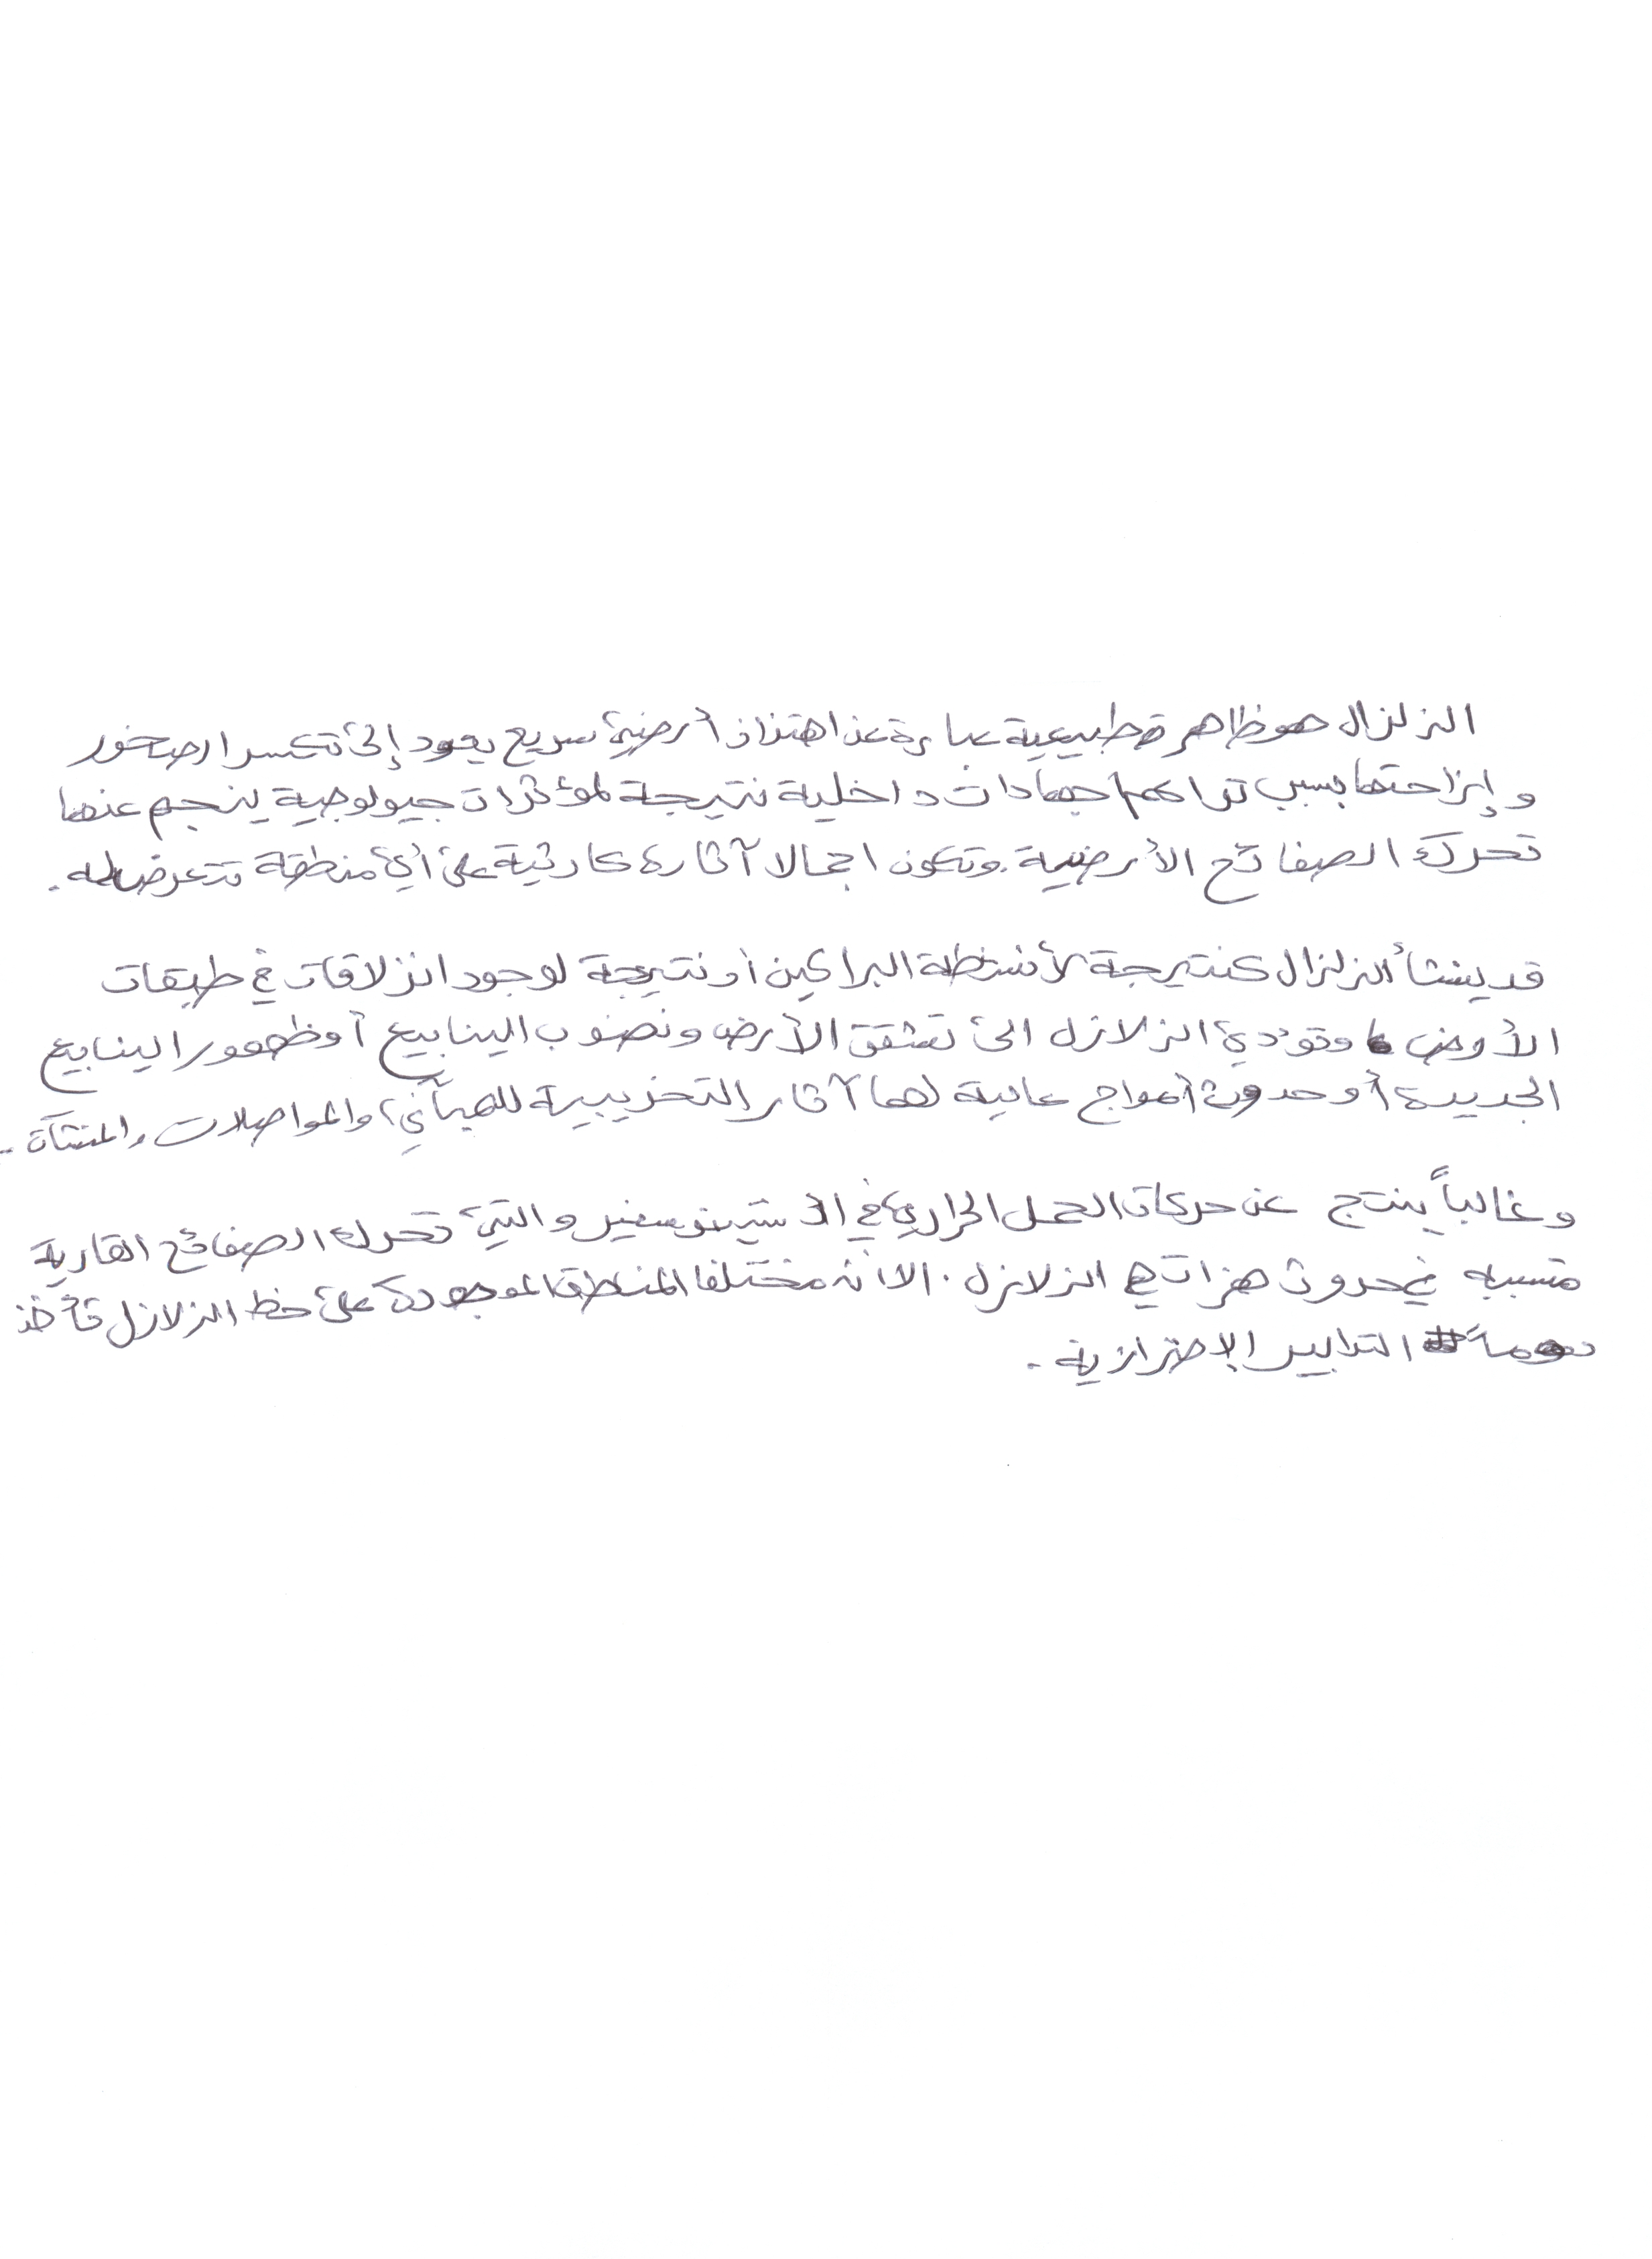 الزلزال هو ظاهرة طبيعية عبارة عن اهتزاز أرضي سريع يعود إلى تكسر الصخور
وإزاحتها بسبب تراكم اجهادات داخلية نتيجة لمؤثرات جيولوجية ينجم عنها
تحرك الصفائح الأرضية. وتكون اجمالا آثاره كارثية على أي منطقة تتعرض له.
قد ينشأ الزلزال كنتيجة لأنشطة البراكين أو نتيجة لوجود انزلاقات في طبقات
الأرض وتؤدي الزلازل الى تشقق الأرض ونضوب الينابيع أو ظهور الينابيع
الجديدة أو حدوث أمواج عالية لها آثار التخريبية للمباني، والمواصلات والمنشآت.
وغالباً ينتج عن حركات الحمل الحراري في الاستينوسفير والتي تحرك الصفائح القارية
متسببه في حدوث هزات هي الزلازل. الا أن مختلف المناطق الموجودة على خط الزلازل تأخذ
دوماً التدابير الإحترازية.